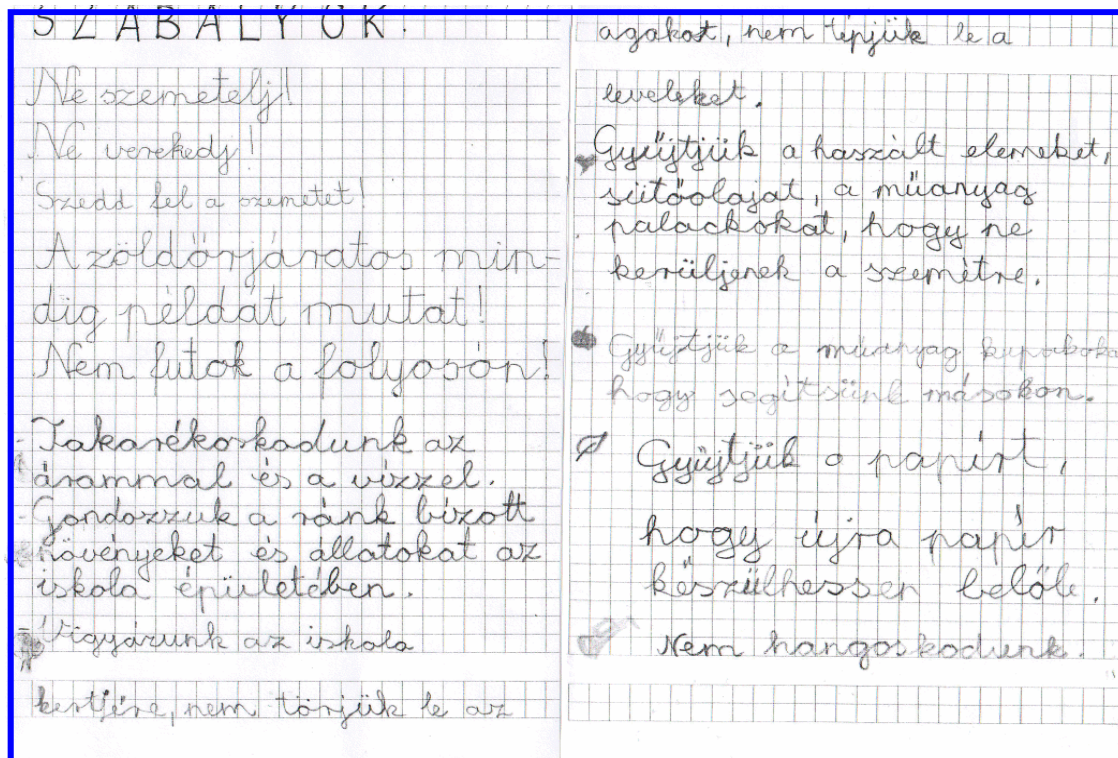 SZABÁLYOK.
Ne szemetelj!
Ne verekedj!
Szedd fel a szemetet!
A zöldőrjáratos min-
dig példát mutat!
Nem futok a folyosón!
- Takarékoskodunk az
árammal és a vízzel.
- Gondozzuk a ránk bízott
növényeket és állatokat az
iskola épületében.
Vigyázunk az iskola
kertjére, nem törjük le az
agakat, nem tépjük le a
leveleket.
Gyűjtjük a haszált elemeket,
sütőolajat, a műanyag
palackokat, hogy ne
kerüljenek a szemétre.
Gyűjtjük a műanyag kupakoka
hogy segítsünk másokon.
Gyűjtjük a papírt,
hogy újra papír
készülhessen belőle.
Nem hangoskodunk.